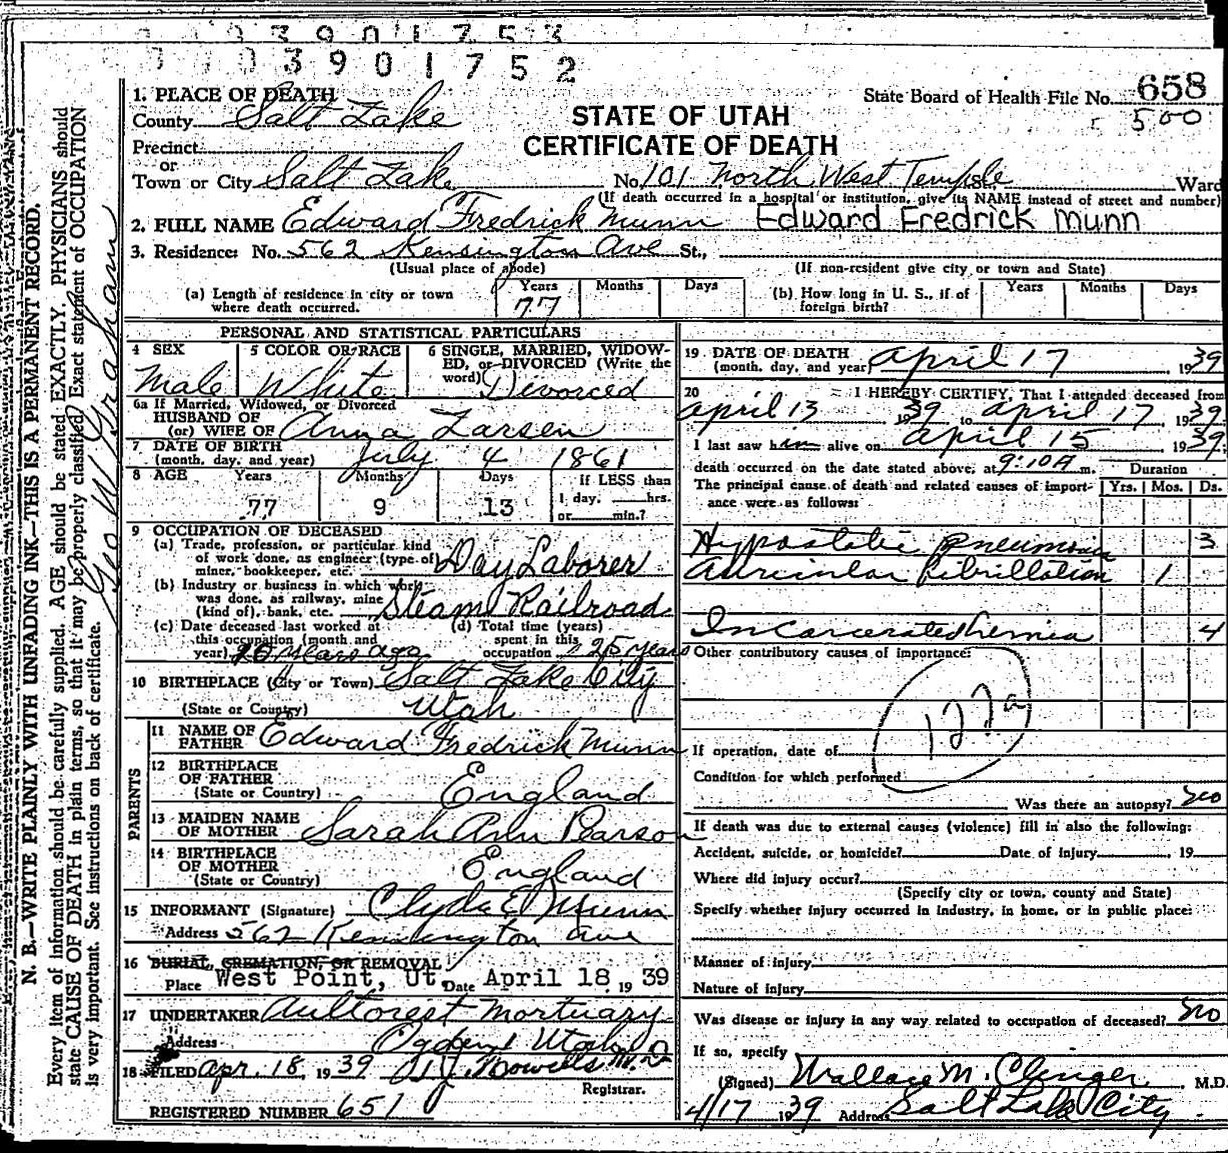 0 0 3 9 0 1 7 5 3
0 0 3 9 0 1 7 5 2
1. PLACE OF DEATH
County Salt Lake
Precinct
or
Town or City Salt Lake
STATE OF UTAH
CERTIFICATE OF DEATH
State Board of Health File No. 658
500
No. 101 North West Temple St. Ward
(If death occurred in a hospital or institution, give its NAME instead of street and number)
2. FULL NAME Edward Fredrick Munn Edward Fredrick Munn
3. Residence: No. 562 Kensington Ave St.,
(Usual place of abode) (If non-resident give city or town and State)
(a) Length of residence in city or town where death occurred. Years 77 Months Days
(b) How long in U. S., if of foreign birth? Years Months Days
PERSONAL AND STATISTICAL PARTICULARS
4 SEX Male
5 COLOR OR RACE White
6 SINGLE, MARRIED, WIDOWED, or DIVORCED (Write the word) Divorced
6a If Married, Widowed, or Divorced
HUSBAND OF
(or) WIFE OF Anna Larsen
7 DATE OF BIRTH
(month, day, and year) July 4 1861
8 AGE Years 77 Months 9 Days 13
If LESS than
1 day, hrs.
or min.?
9 OCCUPATION OF DECEASED
(a) Trade, profession, or particular kind of work done, as engineer (type of miner, bookkeeper, etc. Day Laborer
(b) Industry or business in which work was done, as railway, mine (kind of), bank, etc. Steam Railroad
(c) Date deceased last worked at this occupation (month and year) 20 years ago
(d) Total time (years) spent in this occupation 25 years
10 BIRTHPLACE (City or Town) Salt Lake City
(State or Country) Utah
PARENTS
11 NAME OF FATHER Edward Fredrick Munn
12 BIRTHPLACE OF FATHER
(State or Country) England
13 MAIDEN NAME OF MOTHER Sarah Ann Pearson
14 BIRTHPLACE OF MOTHER
(State or Country) England
15 INFORMANT (Signature) Clyde E Munn
Address 562 Kensington Ave
16 BURIAL, CREMATION, OR REMOVAL
Place West Point, Ut. Date April 18, 19 39
17 UNDERTAKER Aultorest Mortuary
Address Ogden Utah
18 FILED Apr. 18, 19 39 M.D
Registrar.
REGISTERED NUMBER 651
19 DATE OF DEATH
(month, day, and year) April 17, 1939
20 I HEREBY CERTIFY, That I attended deceased from
April 13 1939 to April 17, 1939
I last saw him alive on April 15 1939
death occurred on the date stated above, at 9:10A m. Duration
The principal cause of death and related causes of importance were as follows: Yrs. Mos. Ds.
Hypostatic pneumonia 3
Auricular fibrillation 1
Incarcerated hernia 4
Other contributory causes of importance:
122a
If operation, date of
Condition for which performed
Was there an autopsy? No
If death was due to external causes (violence) fill in also the following:
Accident, suicide, or homicide? Date of injury , 19
Where did injury occur?
(Specify city or town, county and State)
Specify whether injury occurred in industry, in home, or in public place:
Manner of injury
Nature of injury
Was disease or injury in any way related to occupation of deceased? No
If so, specify
(Signed) Wallace M. Clinger, M.D.
4/17 1939 Address Salt Lake City
N. B.—WRITE PLAINLY WITH UNFADING INK—THIS IS A PERMANENT RECORD.
Every item of information should be carefully supplied. AGE should be stated EXACTLY. PHYSICIANS should
state CAUSE OF DEATH in plain terms, so that it may be properly classified. Exact statement of OCCUPATION
is very important. See instructions on back of certificate.
Geo W Graham